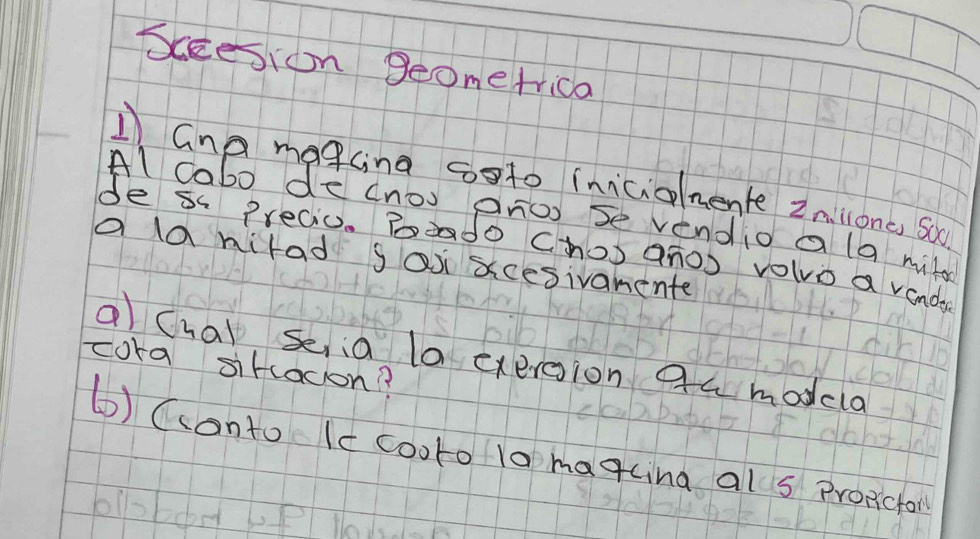 Sccesion geometrica
1) Cna maqcina costo inicialmente 2 millones 500
Al cabo de cnos años se vendio a la mitad
de sc precio. Pasado cnos años volvio a vender
a la mitad y asi sccesivamente
a) Cual seria la expresion qc modela
esta sitcacion?
b) Ccanto le costo la maqcina al 5 propietario